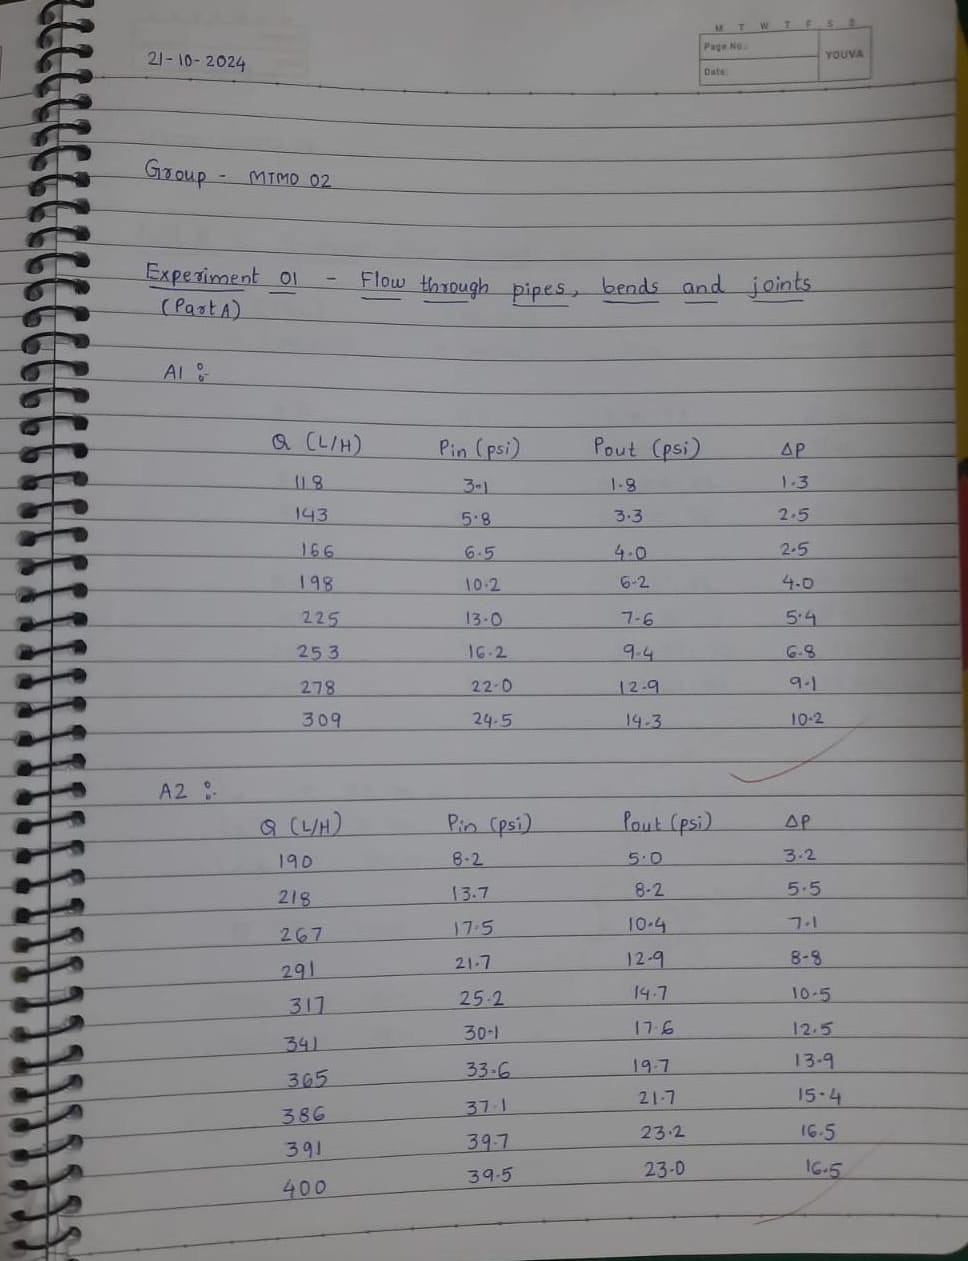 M T W T F S S
Page No.:
YOUVA
Date:
21-10-2024
Group - MTMO 02
Experiment 01 - Flow through pipes, bends and joints
(Part A)
A1 :-
Q (L/H) Pin (psi) Pout (psi) ΔP
118 3.1 1.8 1.3
143 5.8 3.3 2.5
166 6.5 4.0 2.5
198 10.2 6.2 4.0
225 13.0 7.6 5.4
253 16.2 9.4 6.8
278 22.0 12.9 9.1
309 24.5 14.3 10.2
A2 :-
Q (L/H) Pin (psi) Pout (psi) ΔP
190 8.2 5.0 3.2
218 13.7 8.2 5.5
267 17.5 10.4 7.1
291 21.7 12.9 8.8
317 25.2 14.7 10.5
341 30.1 17.6 12.5
365 33.6 19.7 13.9
386 37.1 21.7 15.4
391 39.7 23.2 16.5
400 39.5 23.0 16.5